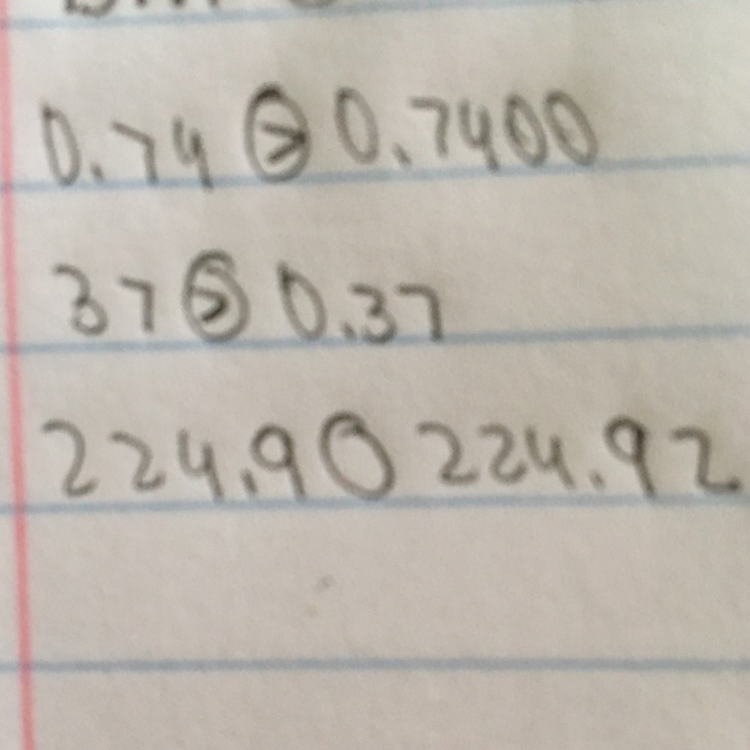 0.74 > 0.7400
37 > 0.37
224.9 ○ 224.92